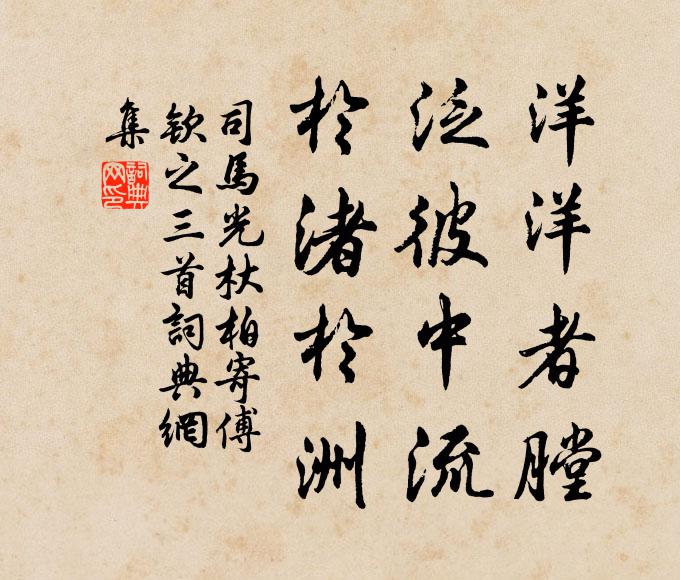 洋洋者膛
泛彼中流
於渚於洲
司馬光杖柏寄傅
欽之三首詞典網
集
詞典
网印